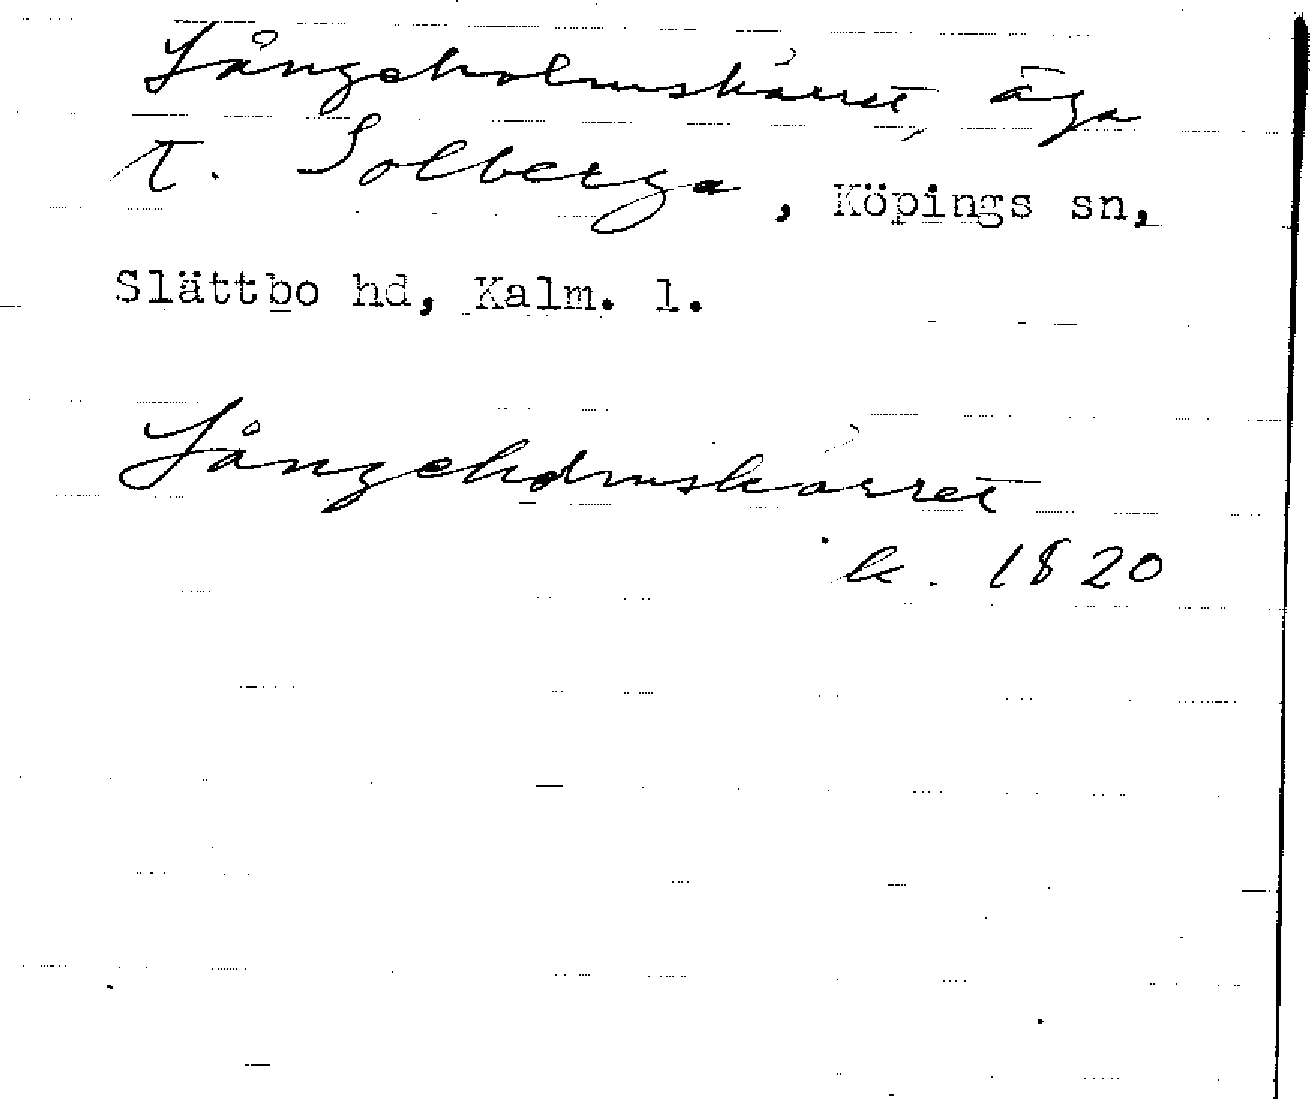 Långeholmskärret, äga
t. Solberga, Köpings sn,
Slättbo hd, Kalm. l.
Långeholmskärret
k. 1820